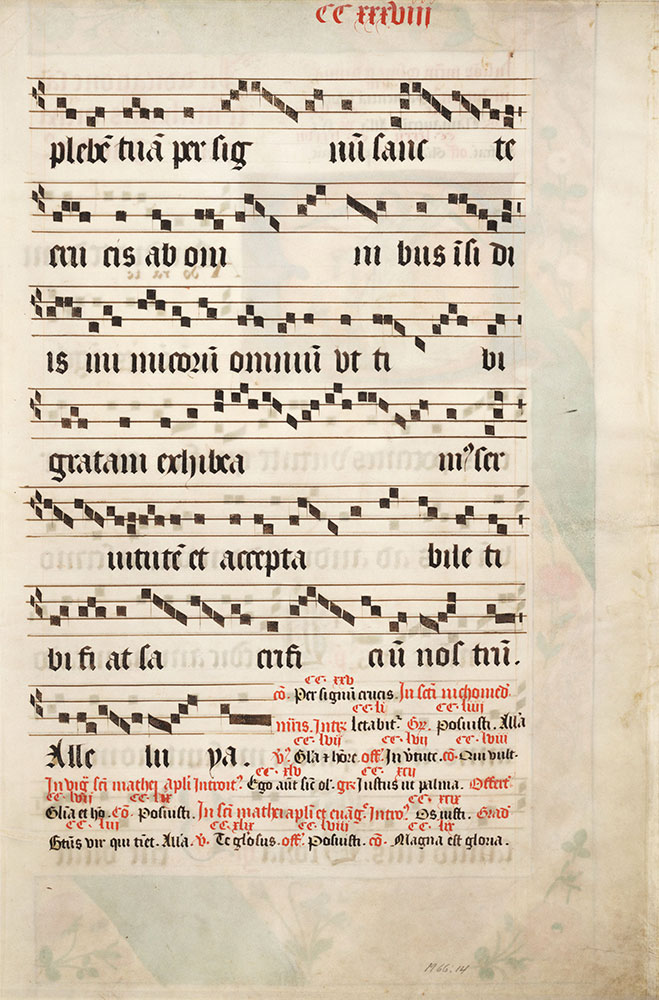 CC xxxviii
plebē tuā per sig nū sanc te
cru cis ab om ni bus īsi di
is ini micorū omniū vt ti bi
gratam exhibea mꝰ ser
uitutē et accepta bile ti
bi fi at sa crifi ciū nos trū.
CC. xxv
cō. Per signū crucis. In scti nichomed
CC. li CC. liii
mris. Intr. letabitr. Gr. Posuisti. Alla
Alle lu ya.
CC. lvii CC. lvii CC. lviii
v. Gla et hore. off. In v̄tute. cō. Qui vult.
CC. xlv CC. xcii
In vigr. scti mathei apli Introitꝰ. Ego aut sic ol. gr. Justus ut palma. Offert.
CC. lviii CC. lix CC. xcix
Glīa et ho. Cō. Posuisti. In scti mathei apli et euāg. Introꝰ. Os iusti. Grad
CC. liii CC. xlix CC. lviii CC. lix
Btūs vir qui timet. Alla. v. Te glosus. off. Posuisti. cō. Magna est gloria.
M 66:14